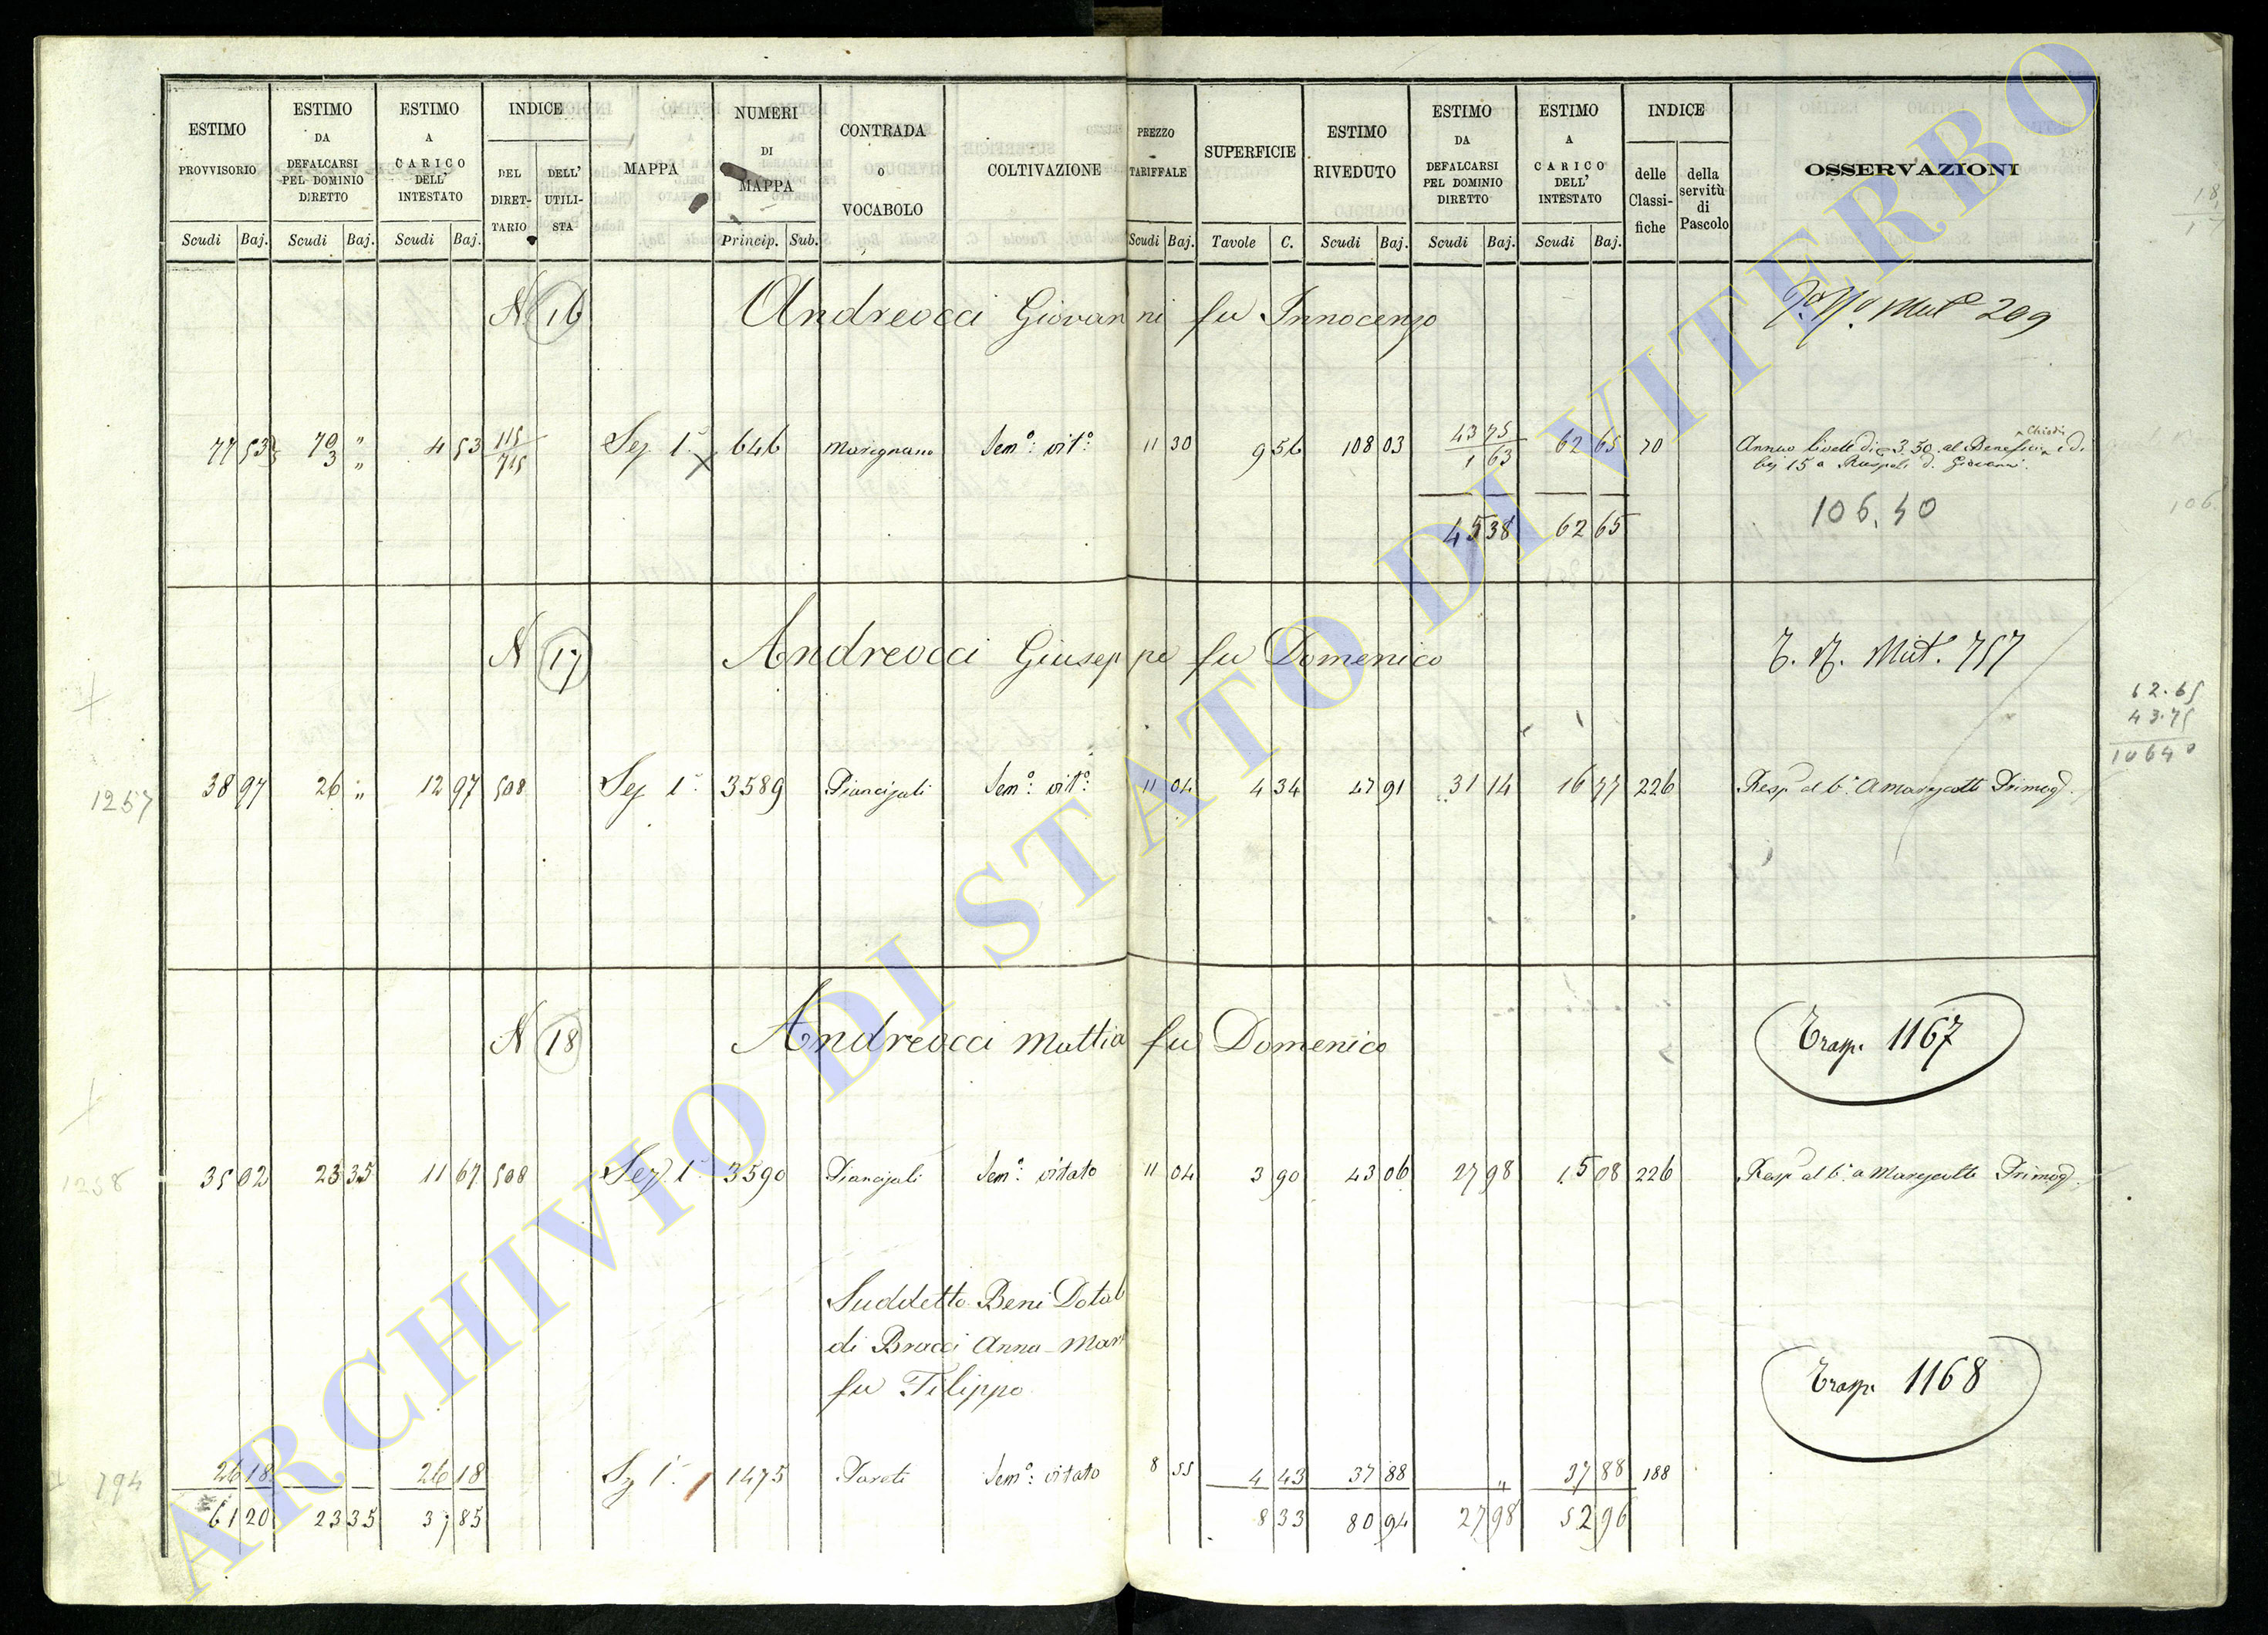 ESTIMO PROVVISORIO
ESTIMO DA DEFALCARSI PEL DOMINIO DIRETTO
ESTIMO A CARICO DELL' INTESTATO
INDICE
DEL DIRETTARIO
DELL' UTILISTA
MAPPA
NUMERI DI MAPPA
CONTRADA O VOCABOLO
COLTIVAZIONE
PREZZO TARIFFALE
SUPERFICIE
ESTIMO RIVEDUTO
ESTIMO DA DEFALCARSI PEL DOMINIO DIRETTO
ESTIMO A CARICO DELL' INTESTATO
INDICE
delle Classifiche
della servitù di Pascolo
OSSERVAZIONI
Scudi Baj. Scudi Baj. Scudi Baj. Princip. Sub. Scudi Baj. Tavole C. Scudi Baj. Scudi Baj. Scudi Baj.
N 16 Andreocci Giovanni fu Innocenzo
Mut 209
77 53 70 " 4 53 115 Sez 1ª 646 Marignano Semº: vitº 11 30 9 56 108 03 43 75 62 65 70 Annuo
3 " 715 1 63 baj 15 a Ruspoli d. Giovanni
45 38 62 65
106.40
N 17 Andreocci Giuseppe fu Domenico
Mut. 757
62.65
43.75
10640
1257 38 97 26 " 12 97 508 Sez 1ª 3589 Piancijali Semº: vitº: 11 04 4 34 47 91 31 14 16 77 226 Resp
N 18 Andreocci Mattia fu Domenico
Trasp. 1167
1258 35 02 23 35 11 67 508 Sez. 1ª 3590 Piancijali Semº: vitato 11 04 3 90 43 06 27 98 15 08 226 Resp
Suddetto Beni Dotali
di Bracci Anna Mar
fu Filippo
Trasp. 1168
194 26 18 26 18 Sez 1ª 1475 Pareti Semº: vitato 8 55 4 43 37 88 " 37 88 188
61 20 23 35 37 85 8 33 80 94 27 98 52 96
ARCHIVIO DI STATO DI VITERBO